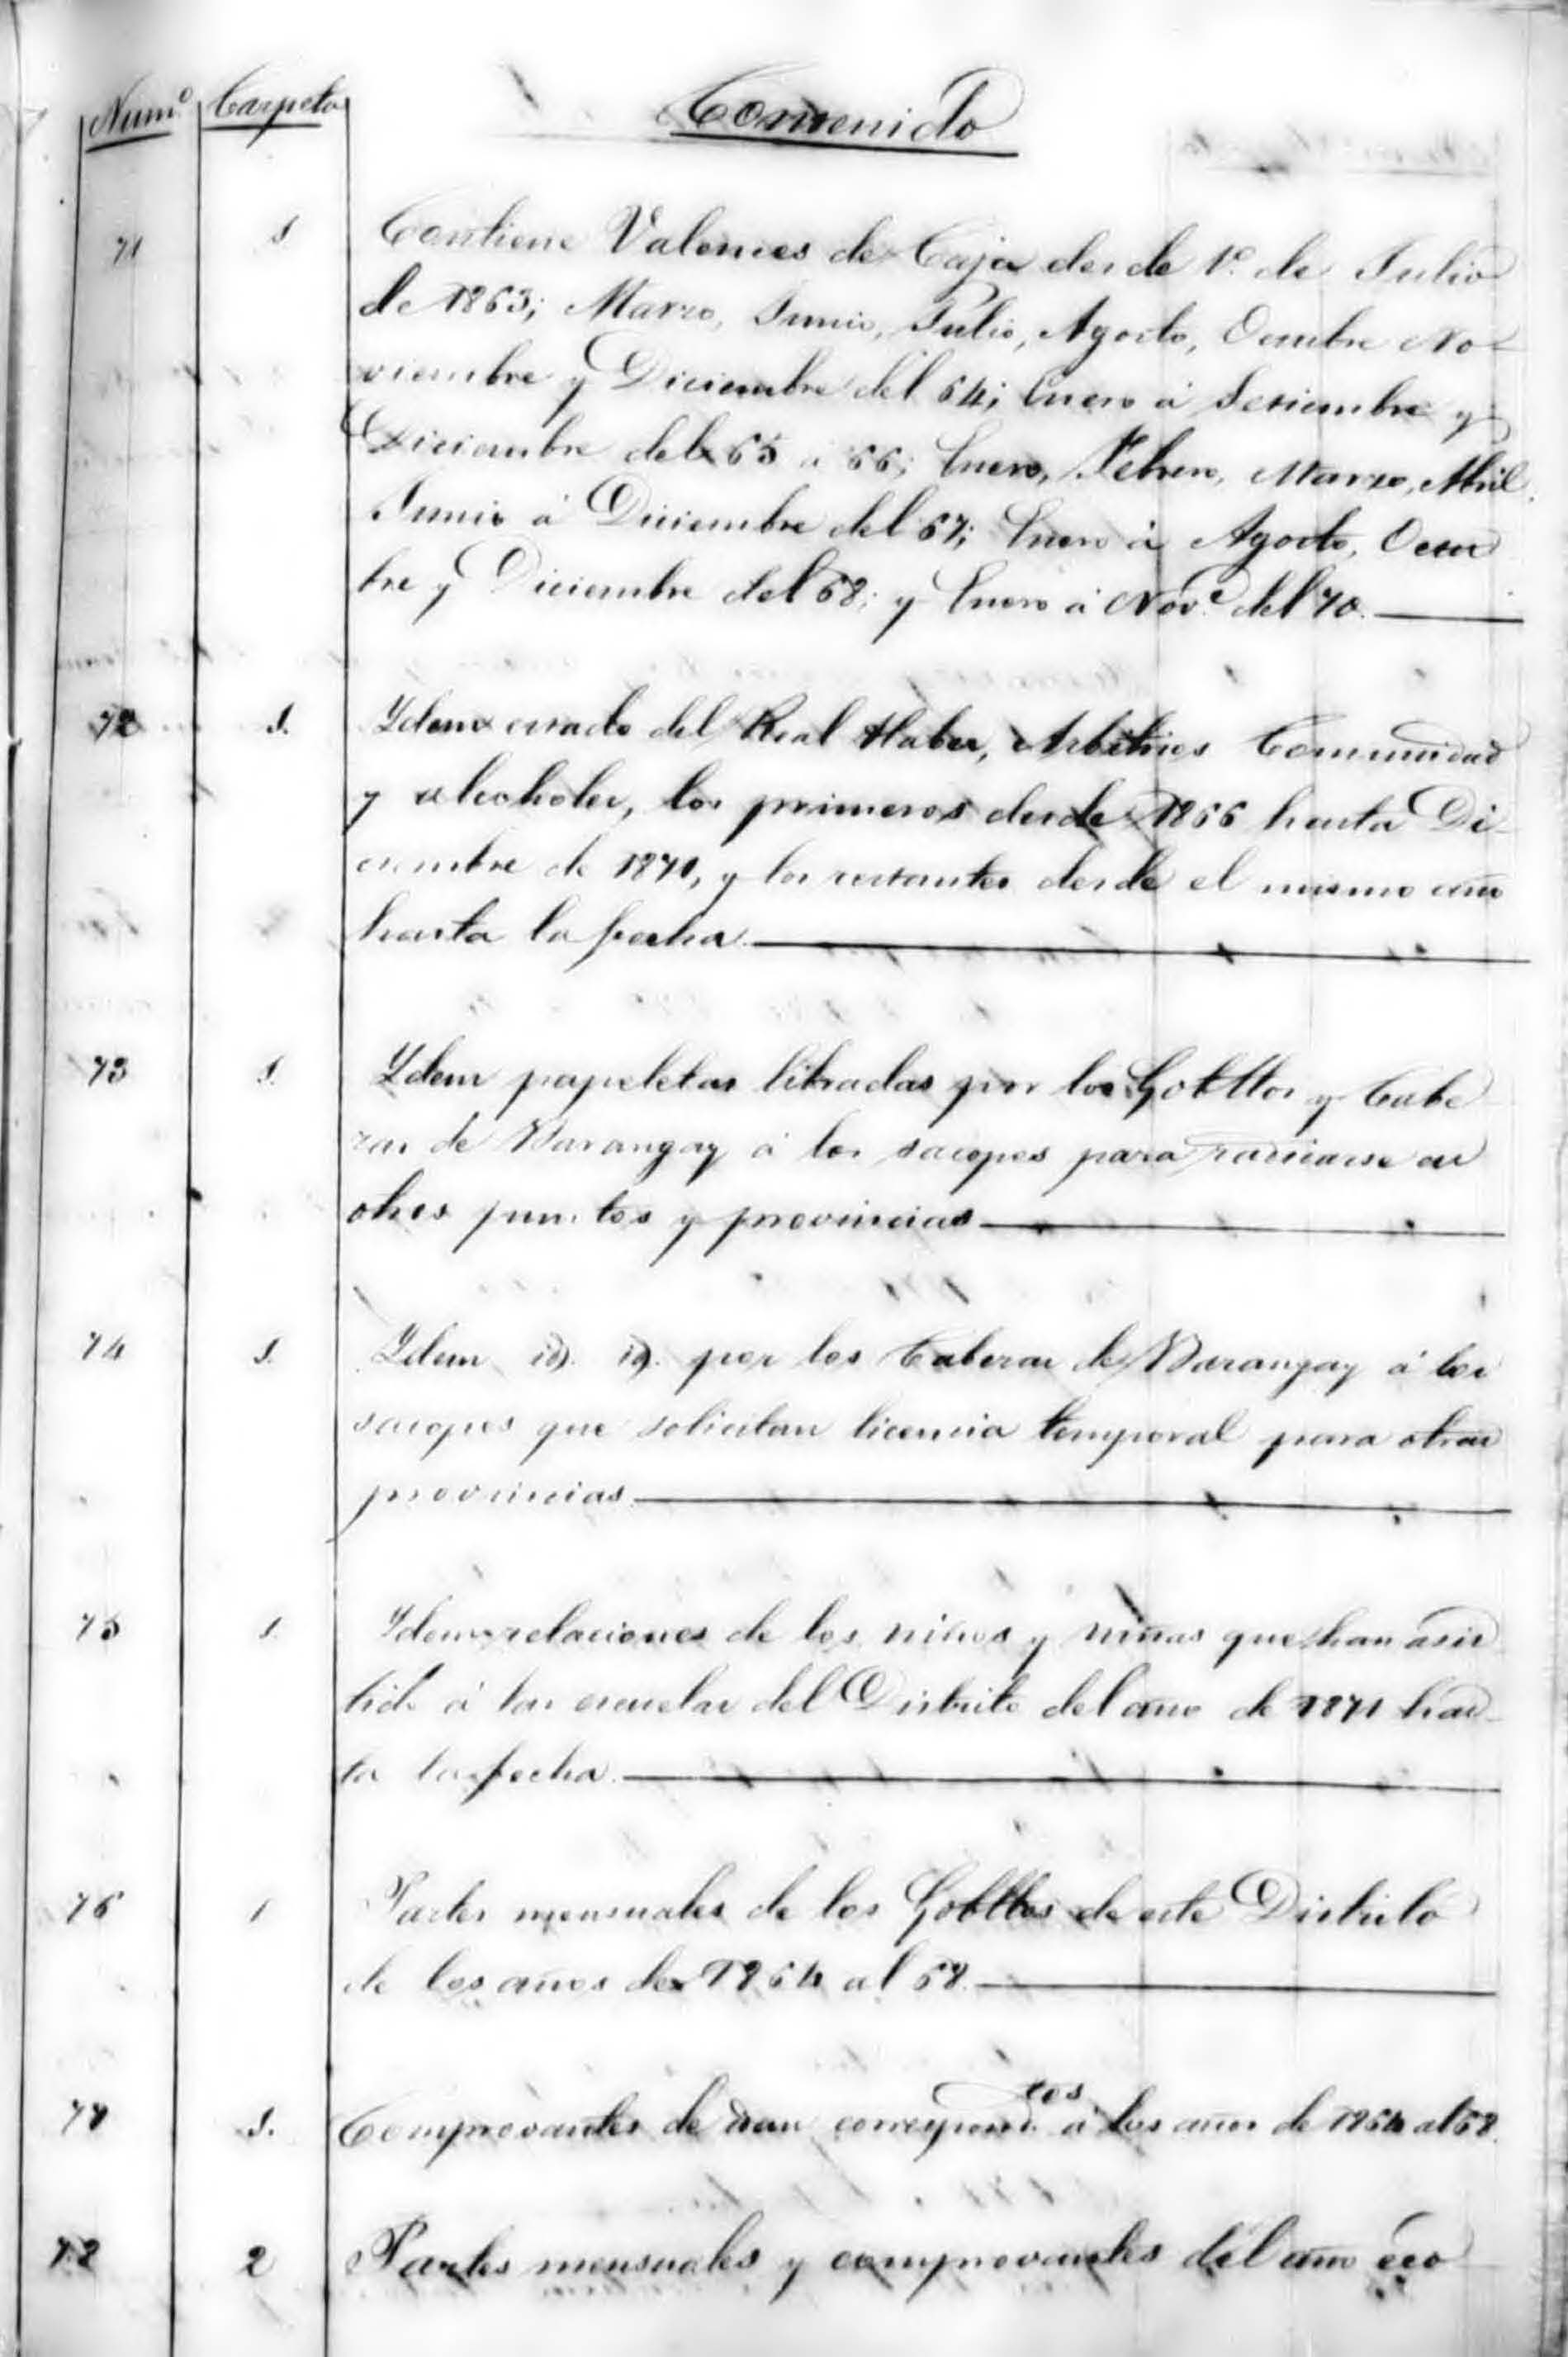 Num.º Carpeta Contenido
71 1 Contiene Valances de Caja desde 1º de Julio
de 1863; Marzo, Junio, Julio, Agosto, Octubre No-
viembre y Diciembre del 64; Enero á Setiembre y
Diciembre del 65 á 66; Enero, Febrero, Marzo, Abril,
Junio á Diciembre del 67; Enero á Agosto, Octu
bre y Diciembre del 68; y Enero á Nov.e del 70.
72 1. Ydem estado del Real Haber, Arbitrios Comunidad
y alcoholes, los primeros desde 1866 hasta Di-
ciembre de 1871, y los restantes desde el mismo año
hasta la fecha.
73 1. Ydem papeletas libradas por los Gobllos y Cabe
zas de Barangay á los sacopes para radicarse en
otros puntos y provincias
74 1. Ydem id. id. por los Cabezas de Barangay á los
sacopes que solicitan licencia temporal para otras
provincias.
75 1. Ydem relaciones de los niños y niñas que han asis
tido á las escuelas del Distrito del año de 1871 has-
ta la fecha.
76 1 Partes mensuales de los Gobllos de este Distrito
de los años de 1864 al 68.
77 1. Comprovantes de correspond.tes á los años de 1864 al 68.
78 2 Partes mensuales y comprovantes del año eco